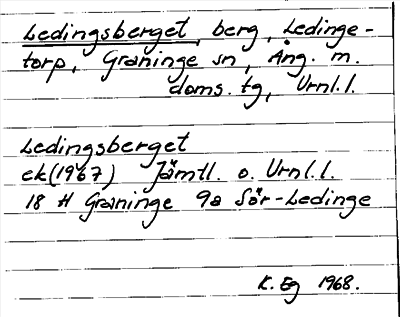 Ledingsberget, berg, Ledinge-
torp, Graninge sn, Ång. m.
doms. tg, Vrnl.l.
Ledingsberget
ek(1967) Jämtl. o. Vrnl.l.
18 H Graninge 9a Sör-Ledinge
K. Eg 1968.